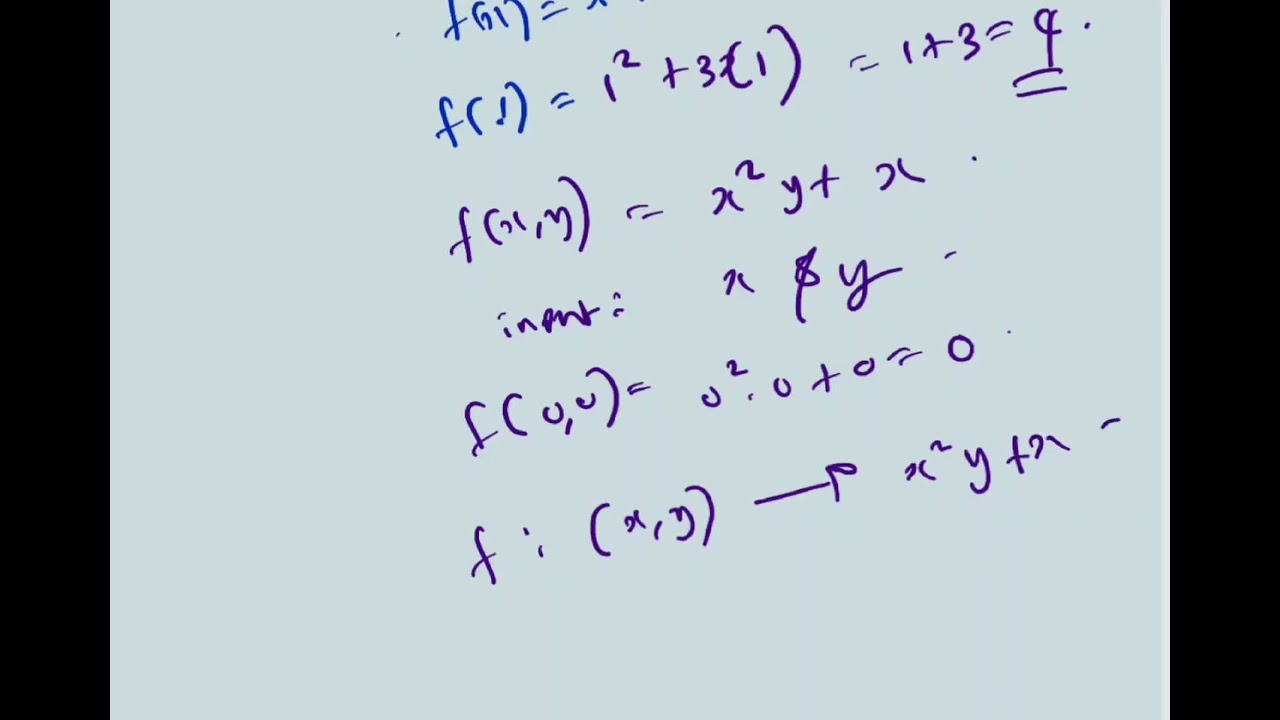 f(x) = x
f(1) = 1² + 3(1) = 1+3 = 4.
f(x,y) = x²y + x.
input: x & y
f(0,0) = 0².0 + 0 = 0
f : (x,y) → x²y + x